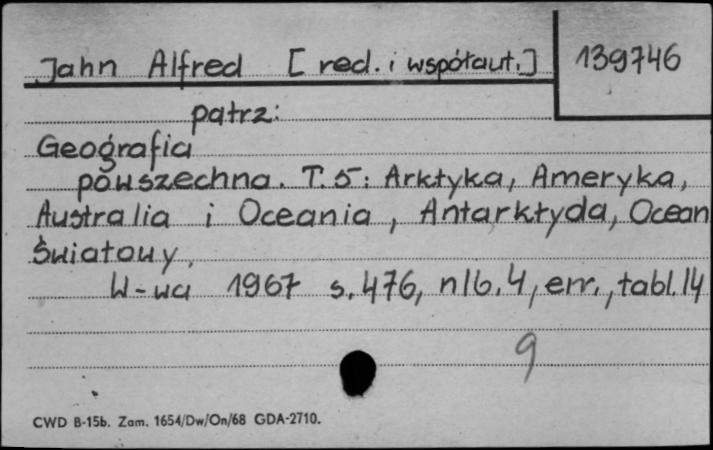 Jahn Alfred [red. i współaut.] 139746
patrz:
Geografia
powszechna. T. 5: Arktyka, Ameryka,
Australia i Oceania, Antarktyda, Ocean
Światowy.
W-wa 1967 s. 476, nlb. 4, err., tabl. 14
9
CWD B-15b. Zam. 1654/Dw/On/68 GDA-2710.